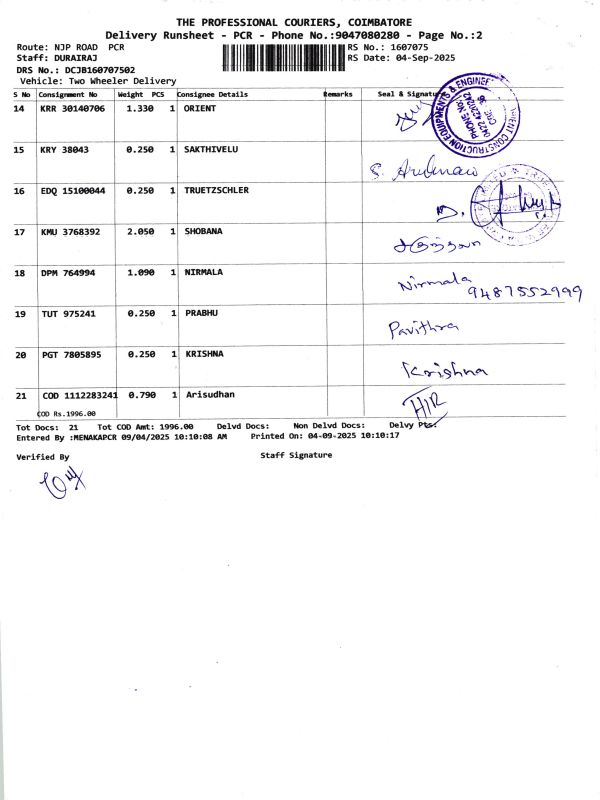 THE PROFESSIONAL COURIERS, COIMBATORE
Delivery Runsheet - PCR - Phone No.:9047080280 - Page No.:2
Route: NJP ROAD PCR
RS No.: 1607075
Staff: DURAIRAJ
RS Date: 04-Sep-2025
DRS No.: DCJB160707502
Vehicle: Two Wheeler Delivery
S No Consignment No Weight PCS Consignee Details Remarks Seal & Signature
14 KRR 30140706 1.330 1 ORIENT
ORIENT CONSTRUCTION EQUIPMENTS & ENGINEE
PHONE No:
0422 4220242
CBE - 36
15 KRY 38043 0.250 1 SAKTHIVELU
16 EDQ 15100044 0.250 1 TRUETZSCHLER
17 KMU 3768392 2.050 1 SHOBANA
18 DPM 764994 1.090 1 NIRMALA
Nirmala
9487552999
19 TUT 975241 0.250 1 PRABHU
Pavithra
20 PGT 7805895 0.250 1 KRISHNA
Krishna
21 COD 1112283241 0.790 1 Arisudhan
COD Rs.1996.00
Tot Docs: 21 Tot COD Amt: 1996.00 Delvd Docs: Non Delvd Docs: Delvy Pts:
Entered By :MENAKAPCR 09/04/2025 10:10:08 AM Printed On: 04-09-2025 10:10:17
Verified By Staff Signature